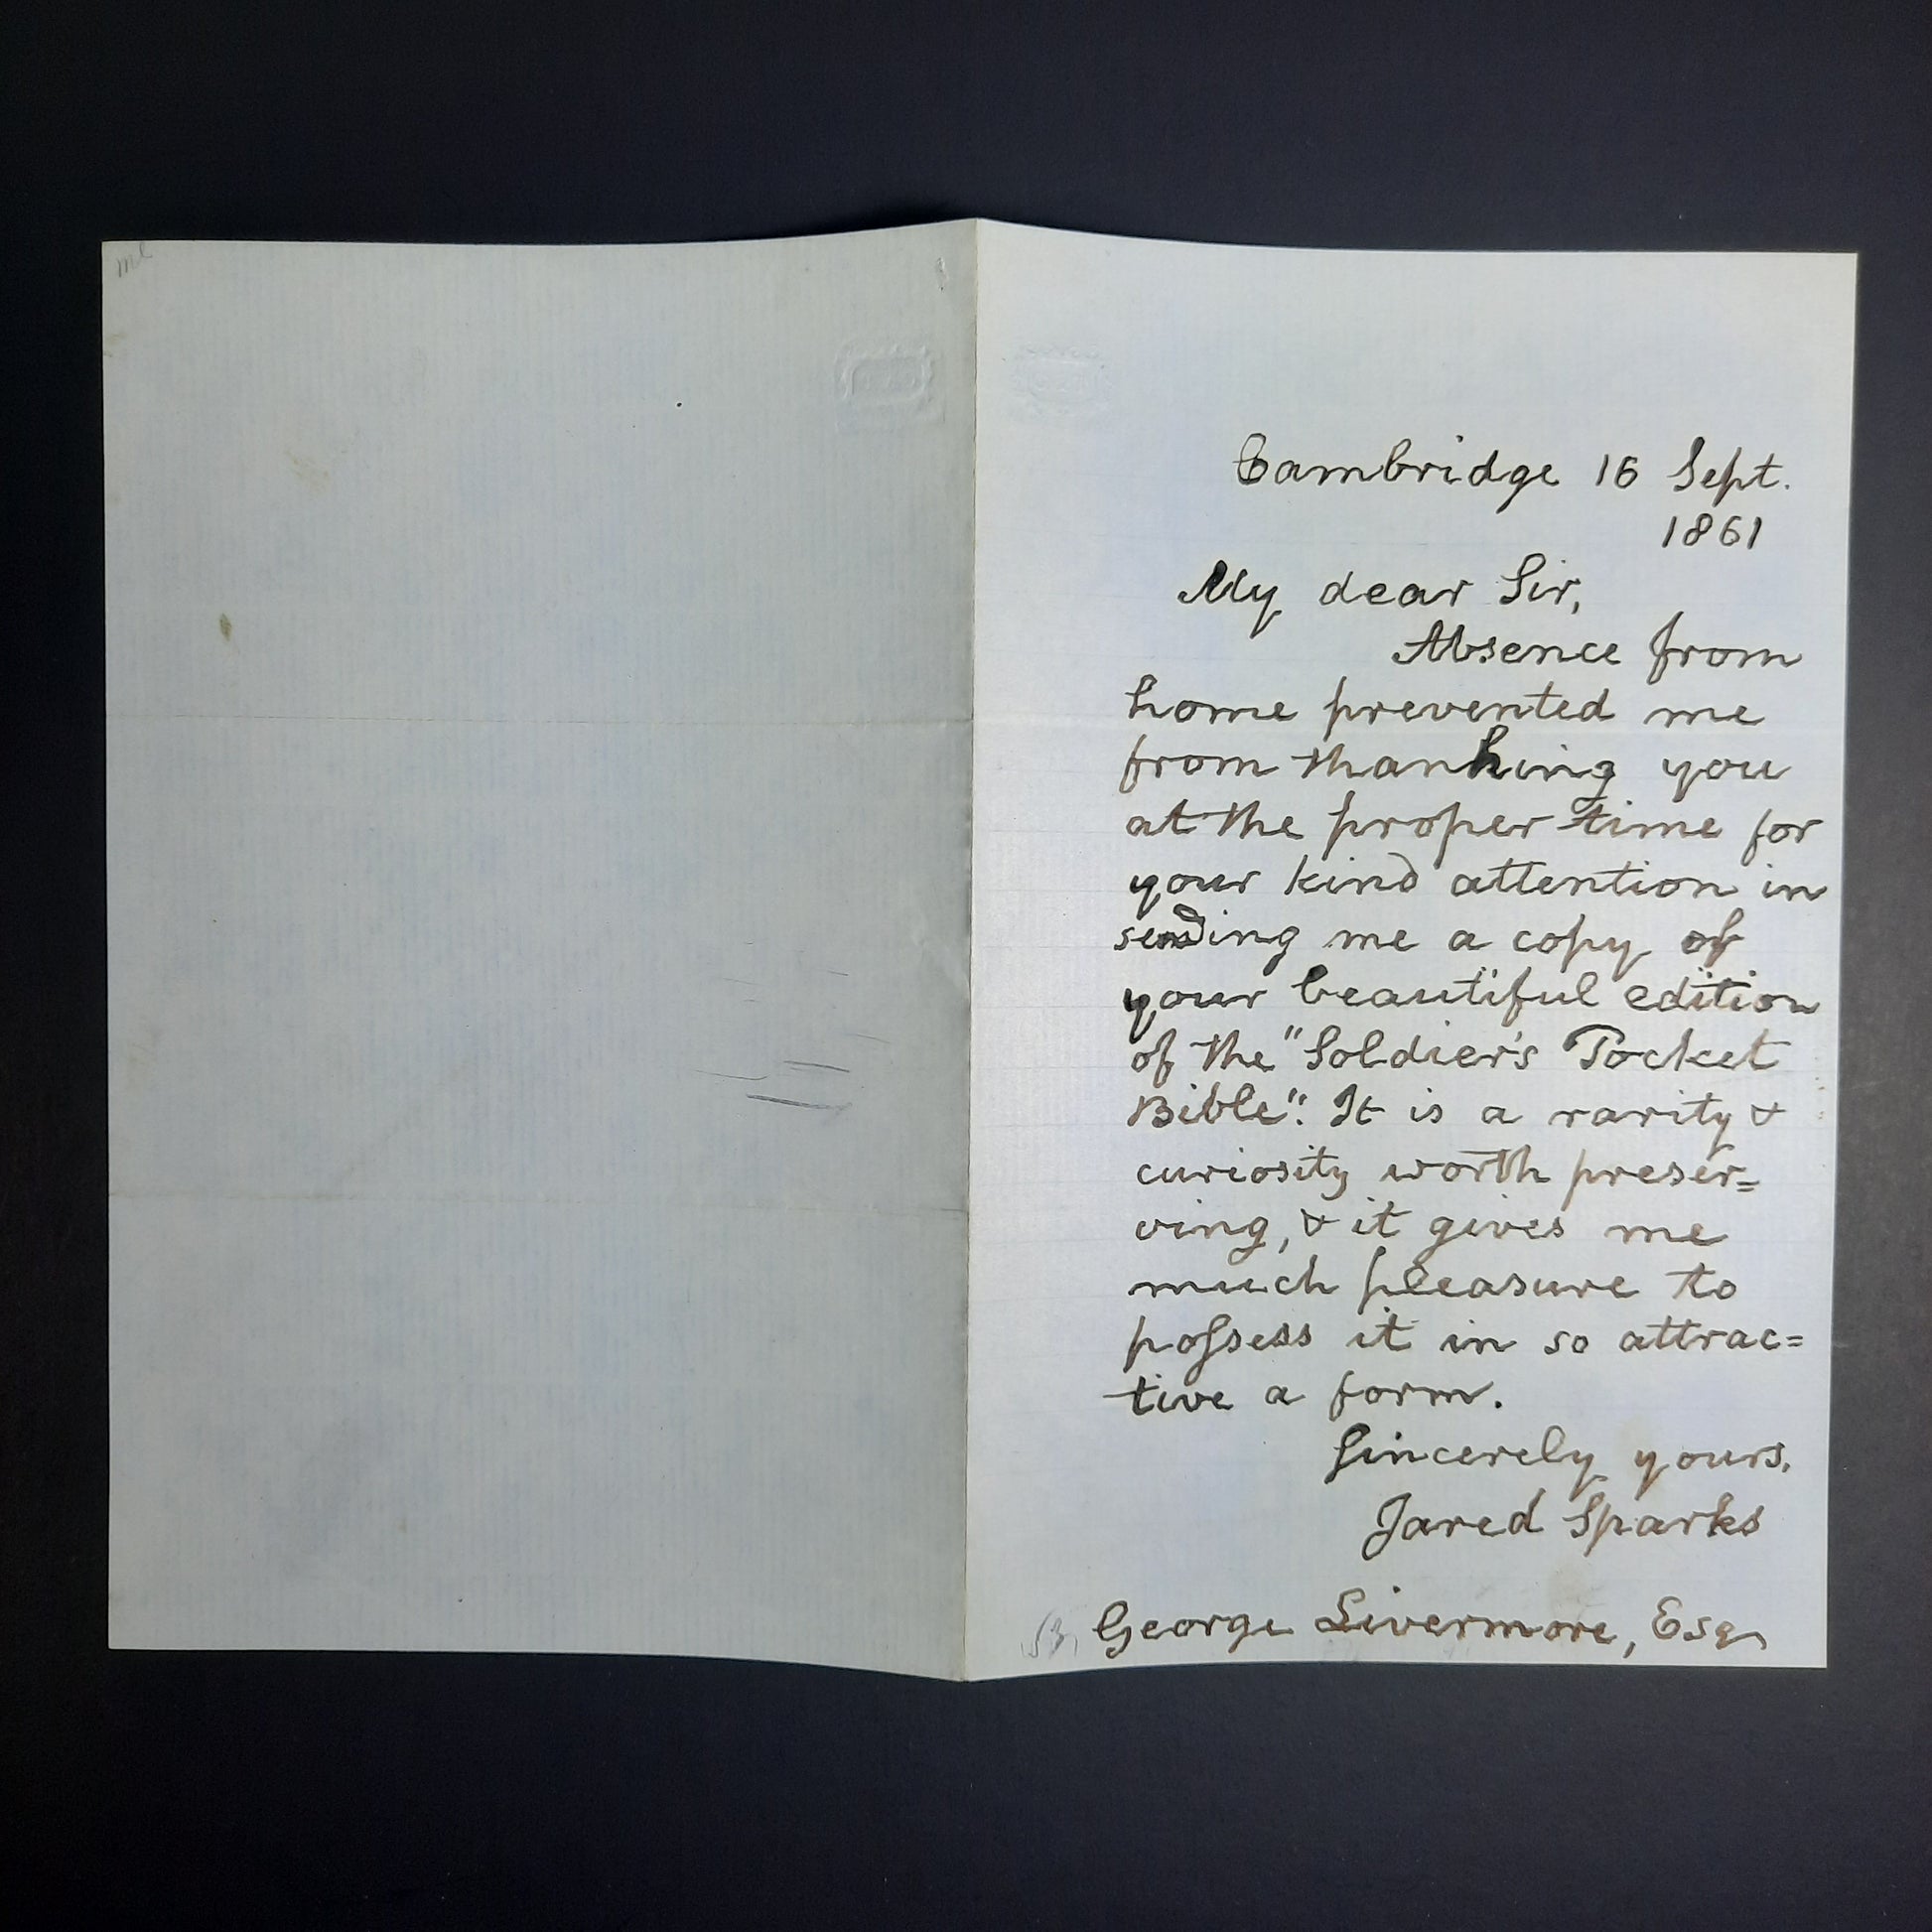 Cambridge 16 Sept.
1861
My dear Sir,
Absence from
home prevented me
from thanking you
at the proper time for
your kind attention in
sending me a copy of
your beautiful edition
of the "Soldier's Pocket
Bible". It is a rarity &
curiosity worth preser=
ving, & it gives me
much pleasure to
possess it in so attrac=
tive a form.
Sincerely yours,
Jared Sparks
George Livermore, Esq.